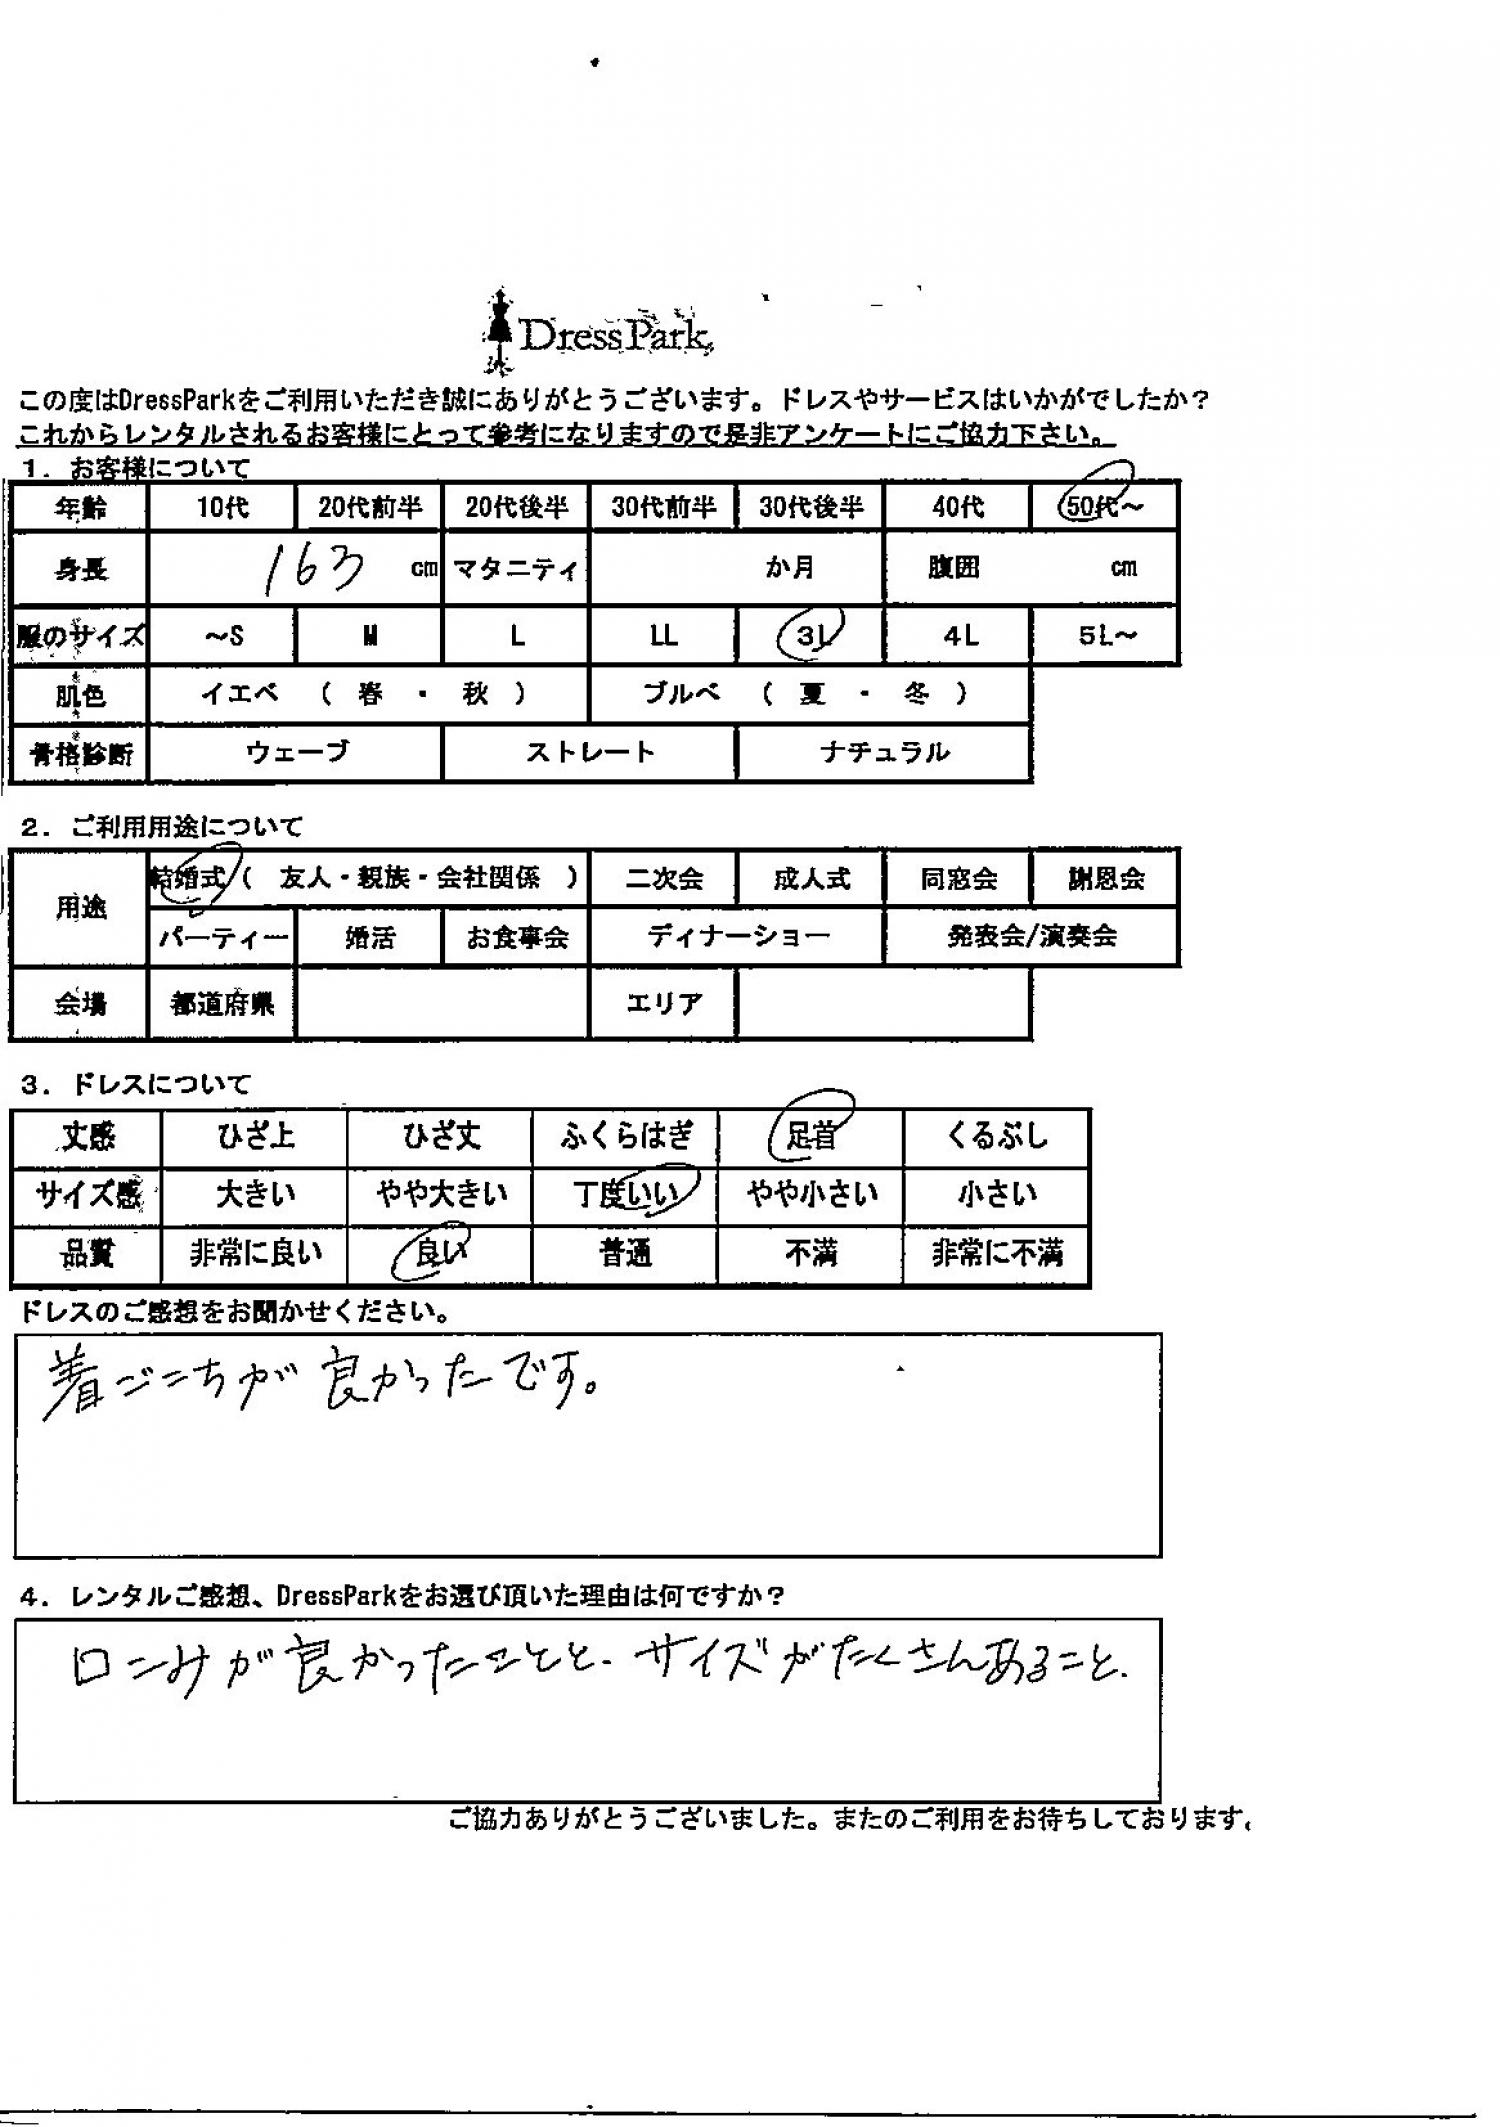 DressPark
この度はDressParkをご利用いただき誠にありがとうございます。ドレスやサービスはいかがでしたか？
これからレンタルされるお客様にとって参考になりますので是非アンケートにご協力下さい。
1. お客様について
年齢 10代 20代前半 20代後半 30代前半 30代後半 40代 50代～
身長 163 cm マタニティ か月 腹囲 cm
服のサイズ ～S M L LL 3L 4L 5L～
肌色 イエベ （ 春 ・ 秋 ） ブルベ （ 夏 ・ 冬 ）
骨格診断 ウェーブ ストレート ナチュラル
2. ご利用用途について
用途 結婚式（ 友人・親族・会社関係 ） 二次会 成人式 同窓会 謝恩会
パーティー 婚活 お食事会 ディナーショー 発表会/演奏会
会場 都道府県 エリア
3. ドレスについて
丈感 ひざ上 ひざ丈 ふくらはぎ 足首 くるぶし
サイズ感 大きい やや大きい 丁度いい やや小さい 小さい
品質 非常に良い 良い 普通 不満 非常に不満
ドレスのご感想をお聞かせください。
着ごこちが良かったです。
4. レンタルご感想、DressParkをお選び頂いた理由は何ですか？
口こみが良かったことと、サイズがたくさんあること。
ご協力ありがとうございました。またのご利用をお待ちしております。